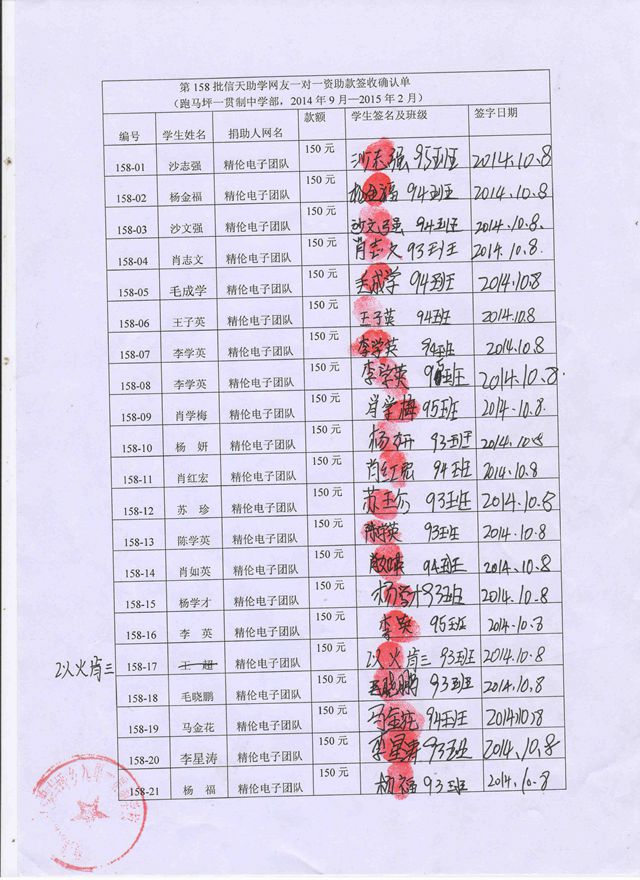 第 158 批信天助学网友一对一资助款签收确认单
（跑马坪一贯制中学部，2014 年 9 月—2015 年 2 月）
编号 学生姓名 捐助人网名 款额 学生签名及班级 签字日期
158-01 沙志强 精伦电子团队 150 元 沙志强 95班 2014.10.8
158-02 杨金福 精伦电子团队 150 元 杨金福 94班 2014.10.8
158-03 沙文强 精伦电子团队 150 元 沙文强 94班 2014.10.8.
158-04 肖志文 精伦电子团队 150 元 肖志文 93班 2014.10.8
158-05 毛成学 精伦电子团队 150 元 毛成学 94班 2014.10.8
158-06 王子英 精伦电子团队 150 元 王子英 94班 2014.10.8
158-07 李学英 精伦电子团队 150 元 李学英 94班 2014.10.8
158-08 李学英 精伦电子团队 150 元 李学英 班 2014.10.8.
158-09 肖学梅 精伦电子团队 150 元 肖学梅 95班 2014.10.8.
158-10 杨 妍 精伦电子团队 150 元 杨妍 93班 2014.10.8
158-11 肖红宏 精伦电子团队 150 元 肖红宏 94班 2014.10.8
158-12 苏 珍 精伦电子团队 150 元 苏 93班 2014.10.8
158-13 陈学英 精伦电子团队 150 元 陈学英 93班 2014.10.8
158-14 肖如英 精伦电子团队 150 元 肖如英 94班 2014.10.8
158-15 杨学才 精伦电子团队 150 元 杨学才 93班 2014.10.8
158-16 李 英 精伦电子团队 150 元 李英 95班 2014.10.8
以火肯三 158-17 王 超 精伦电子团队 150 元 以火肯三 93班 2014.10.8
158-18 毛晓鹏 精伦电子团队 150 元 毛晓鹏 93班 2014.10.8
158-19 马金花 精伦电子团队 150 元 马金花 94班 2014.10.8
158-20 李星涛 精伦电子团队 150 元 李星涛 93班 2014.10.8
158-21 杨 福 精伦电子团队 150 元 杨福 93班 2014.10.8